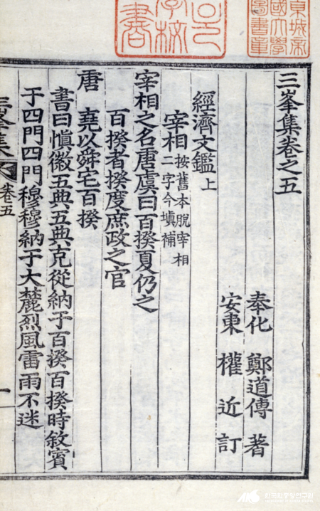 三峯集卷之五
奉化 鄭道傳 著
安東 權近 訂
經濟文鑑上
宰相 按舊本脫宰相二字今塡補
宰相之名唐虞曰百揆夏仍之
百揆者揆度庶政之官
唐 堯以舜宅百揆
書曰愼徽五典五典克從納于百揆百揆時敘賓
于四門四門穆穆納于大麓烈風雷雨不迷
卷五